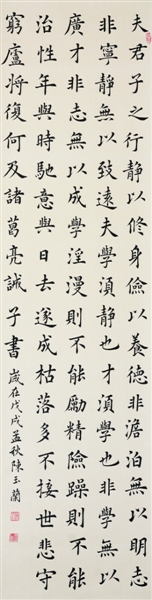 夫君子之行靜以修身儉以養德非澹泊無以明志
非寧靜無以致遠夫學須靜也才須學也非學無以
廣才非志無以成學淫漫則不能勵精險躁則不能
治性年與時馳意與日去遂成枯落多不接世悲守
窮廬將復何及諸葛亮誡子書 歲在戊戌孟秋陳玉蘭